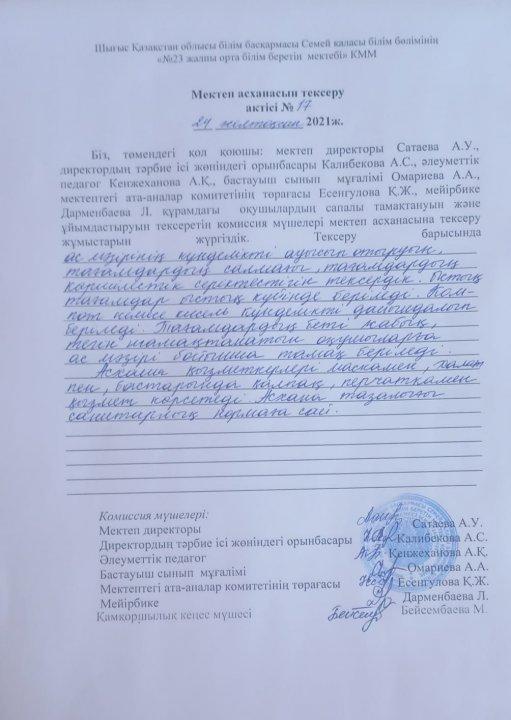 Шығыс Қазақстан облысы білім басқармасы Семей қаласы білім бөлімінің
«№23 жалпы орта білім беретін мектебі» КММ
Мектеп асханасын тексеру
актісі № 17
24 желтоқсан 2021ж.
Біз, төмендегі қол қоюшы: мектеп директоры Сатаева А.У.,
директордың тәрбие ісі жөніндегі орынбасары Калибекова А.С., әлеуметтік
педагог Кенжеханова А.Қ., бастауыш сынып мұғалімі Омариева А.А.,
мектептегі ата-аналар комитетінің төрағасы Есенгулова Қ.Ж., мейірбике
Дарменбаева Л. құрамдағы оқушылардың сапалы тамақтануын және
ұйымдастыруын тексеретін комиссия мүшелері мектеп асханасына тексеру
жұмыстарын жүргіздік. Тексеру барысында
ас мәзірінің күнделікті ауысып отыруын,
тағамдардың салмағы, тағамдардың
көршілестік серіктестігін тексердік. Ыстық
тағамдар ыстық күйінде беріледі. Ком-
пот немесе кисель күнделікті дайындалып
беріледі. Тағамдардың беті жабық,
тегін тамақтанатын оқушыларға
ас мәзірі бойынша тамақ беріледі.
Асхана қызметкерлері маскамен, халат
пен, бастарында калпақ, перчаткамен
қызмет көрсетеді. Асхана тазалығы
санитарлық нормаға сай.
Комиссия мүшелері:
Мектеп директоры Сатаева А.У.
Директордың тәрбие ісі жөніндегі орынбасары Калибекова А.С.
Әлеуметтік педагог Кенжеханова А.Қ.
Бастауыш сынып мұғалімі Омариева А.А.
Мектептегі ата-аналар комитетінің төрағасы Есенгулова Қ.Ж.
Мейірбике Дарменбаева Л.
Қамқоршылық кеңес мүшесі Бейсембаева М.